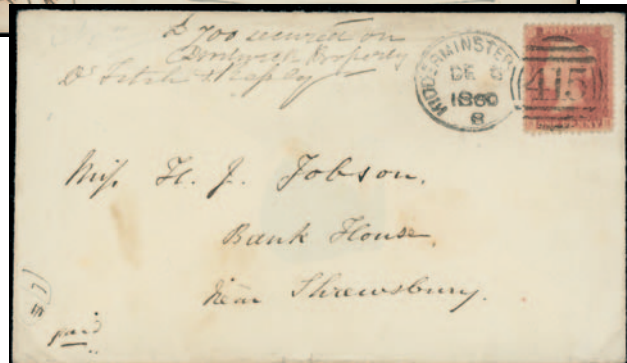 £700 secured on
Property
Dr Fitch
KIDDERMINSTER
DE 8
1860
8
415
Miss H. J. Jobson.
Bank House,
Near Shrewsbury.
paid